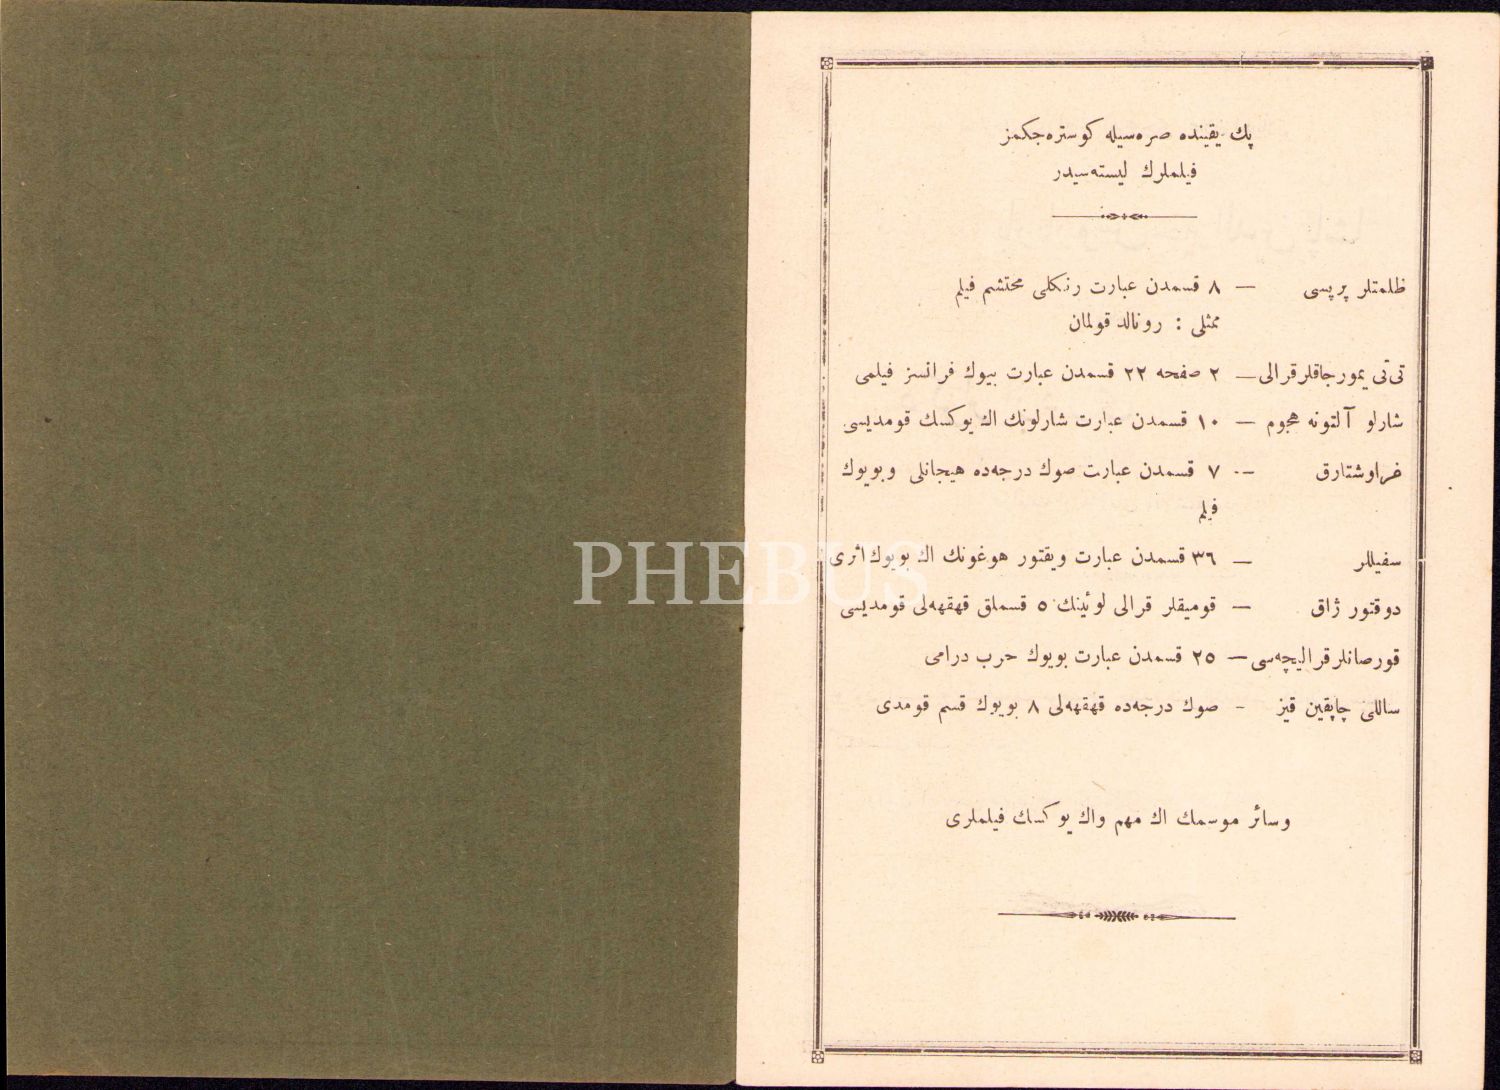 پك يقينده صره‌سيله كوستره‌جكمز
فيلملرك ليسته‌سيدر
ظلمتلر پريسى — ٨ قسمدن عبارت رنكلى محتشم فيلم
ممثلى : رونالد قولمان
تى‌تى يمورجاقلر قرالى — ٢ صفحه ٢٢ قسمدن عبارت بيوك فرانسز فيلمى
شارلو آلتونه هجوم — ١٠ قسمدن عبارت شارلونك اك يوكسك قومديسى
خراوشتارق — ٧ قسمدن عبارت صوك درجه‌ده هيجانلى وبويوك
فيلم
سفيللر — ٣٦ قسمدن عبارت ويقتور هوغونك اك بويوك اثرى
PHEBUS
دوقتور ژاق — قوميقلر قرالى لوئينك ٥ قسملق قهقهه‌لى قومديسى
قورصانلر قراليچه‌سى — ٢٥ قسمدن عبارت بويوك حرب درامى
ساللى چاپقين قيز - صوك درجه‌ده قهقهه‌لى ٨ بويوك قسم قومدى
وسائر موسمك اك مهم واك يوكسك فيلملرى